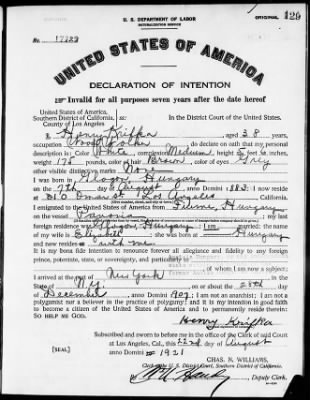 U. S. DEPARTMENT OF LABOR
NATURALIZATION SERVICE
ORIGINAL 129
No. 17229
UNITED STATES OF AMERICA
DECLARATION OF INTENTION
Invalid for all purposes seven years after the date hereof
United States of America,
Southern District of California, ss:
County of Los Angeles
In the District Court of the United States.
I, Henry Krifka, aged 38 years,
occupation, do declare on oath that my personal
description is: Color White, complexion Medium, height 5 feet 6 inches,
weight 176 pounds, color of hair Brown, color of eyes Grey
other visible distinctive marks None
I was born in, Hungary
on the 7th day of August, anno Domini 1883; I now reside
at 810 Omar st Los Angeles, California.
I emigrated to the United States of America from Fiume, Hungary
on the vessel Panonia; my last
foreign residence was, Hungary; I am married; the name
of my wife is; she was born at Hungary
and now resides at with me
It is my bona fide intention to renounce forever all allegiance and fidelity to any foreign
prince, potentate, state, or sovereignty, and particularly to
, of whom I am now a subject;
I arrived at the port of New York, in the
State of N.Y., on or about the 28th day
of December, anno Domini 1907; I am not an anarchist; I am not a
polygamist nor a believer in the practice of polygamy; and it is my intention in good faith
to become a citizen of the United States of America and to permanently reside therein:
SO HELP ME GOD.
Henry Krifka
Subscribed and sworn to before me in the office of the Clerk of said Court
at Los Angeles, Cal., this 22nd day of August
anno Domini 1921
[SEAL]
CHAS. N. WILLIAMS,
Clerk of the U. S. District Court, Southern District of California.
By, Deputy Clerk.